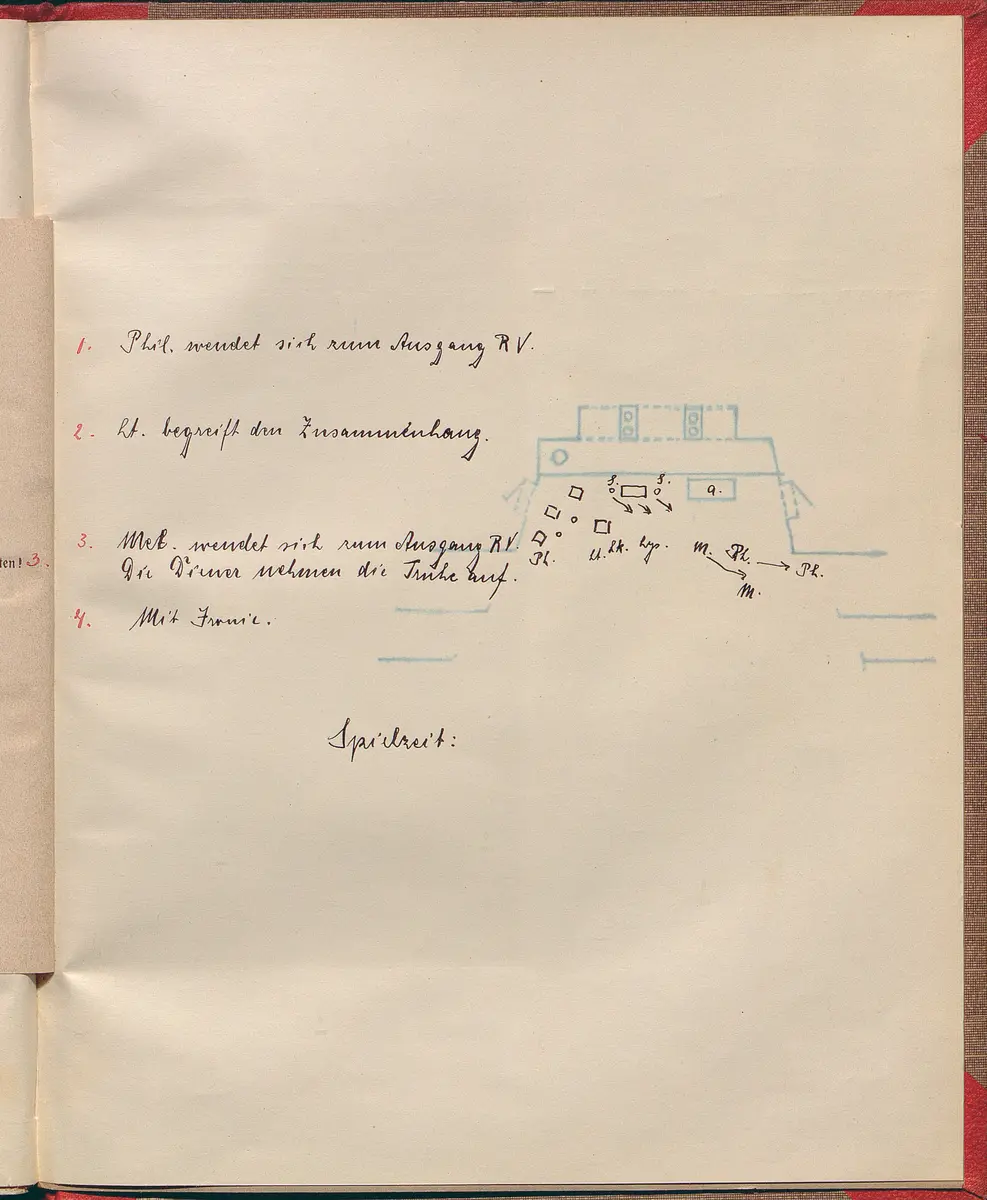 1. Phil. wendet sich zum Ausgang RV.
2. Lt. begreift den Zusammenhang.
ten! 3.
3. Met. wendet sich zum Ausgang RV.
Die Diener nehmen die Truhe auf.
4. Mit Ironie.
S. S. a.
Ph. Lt. Lk. Lys. M. Ph. Ph.
M.
Spielzeit: